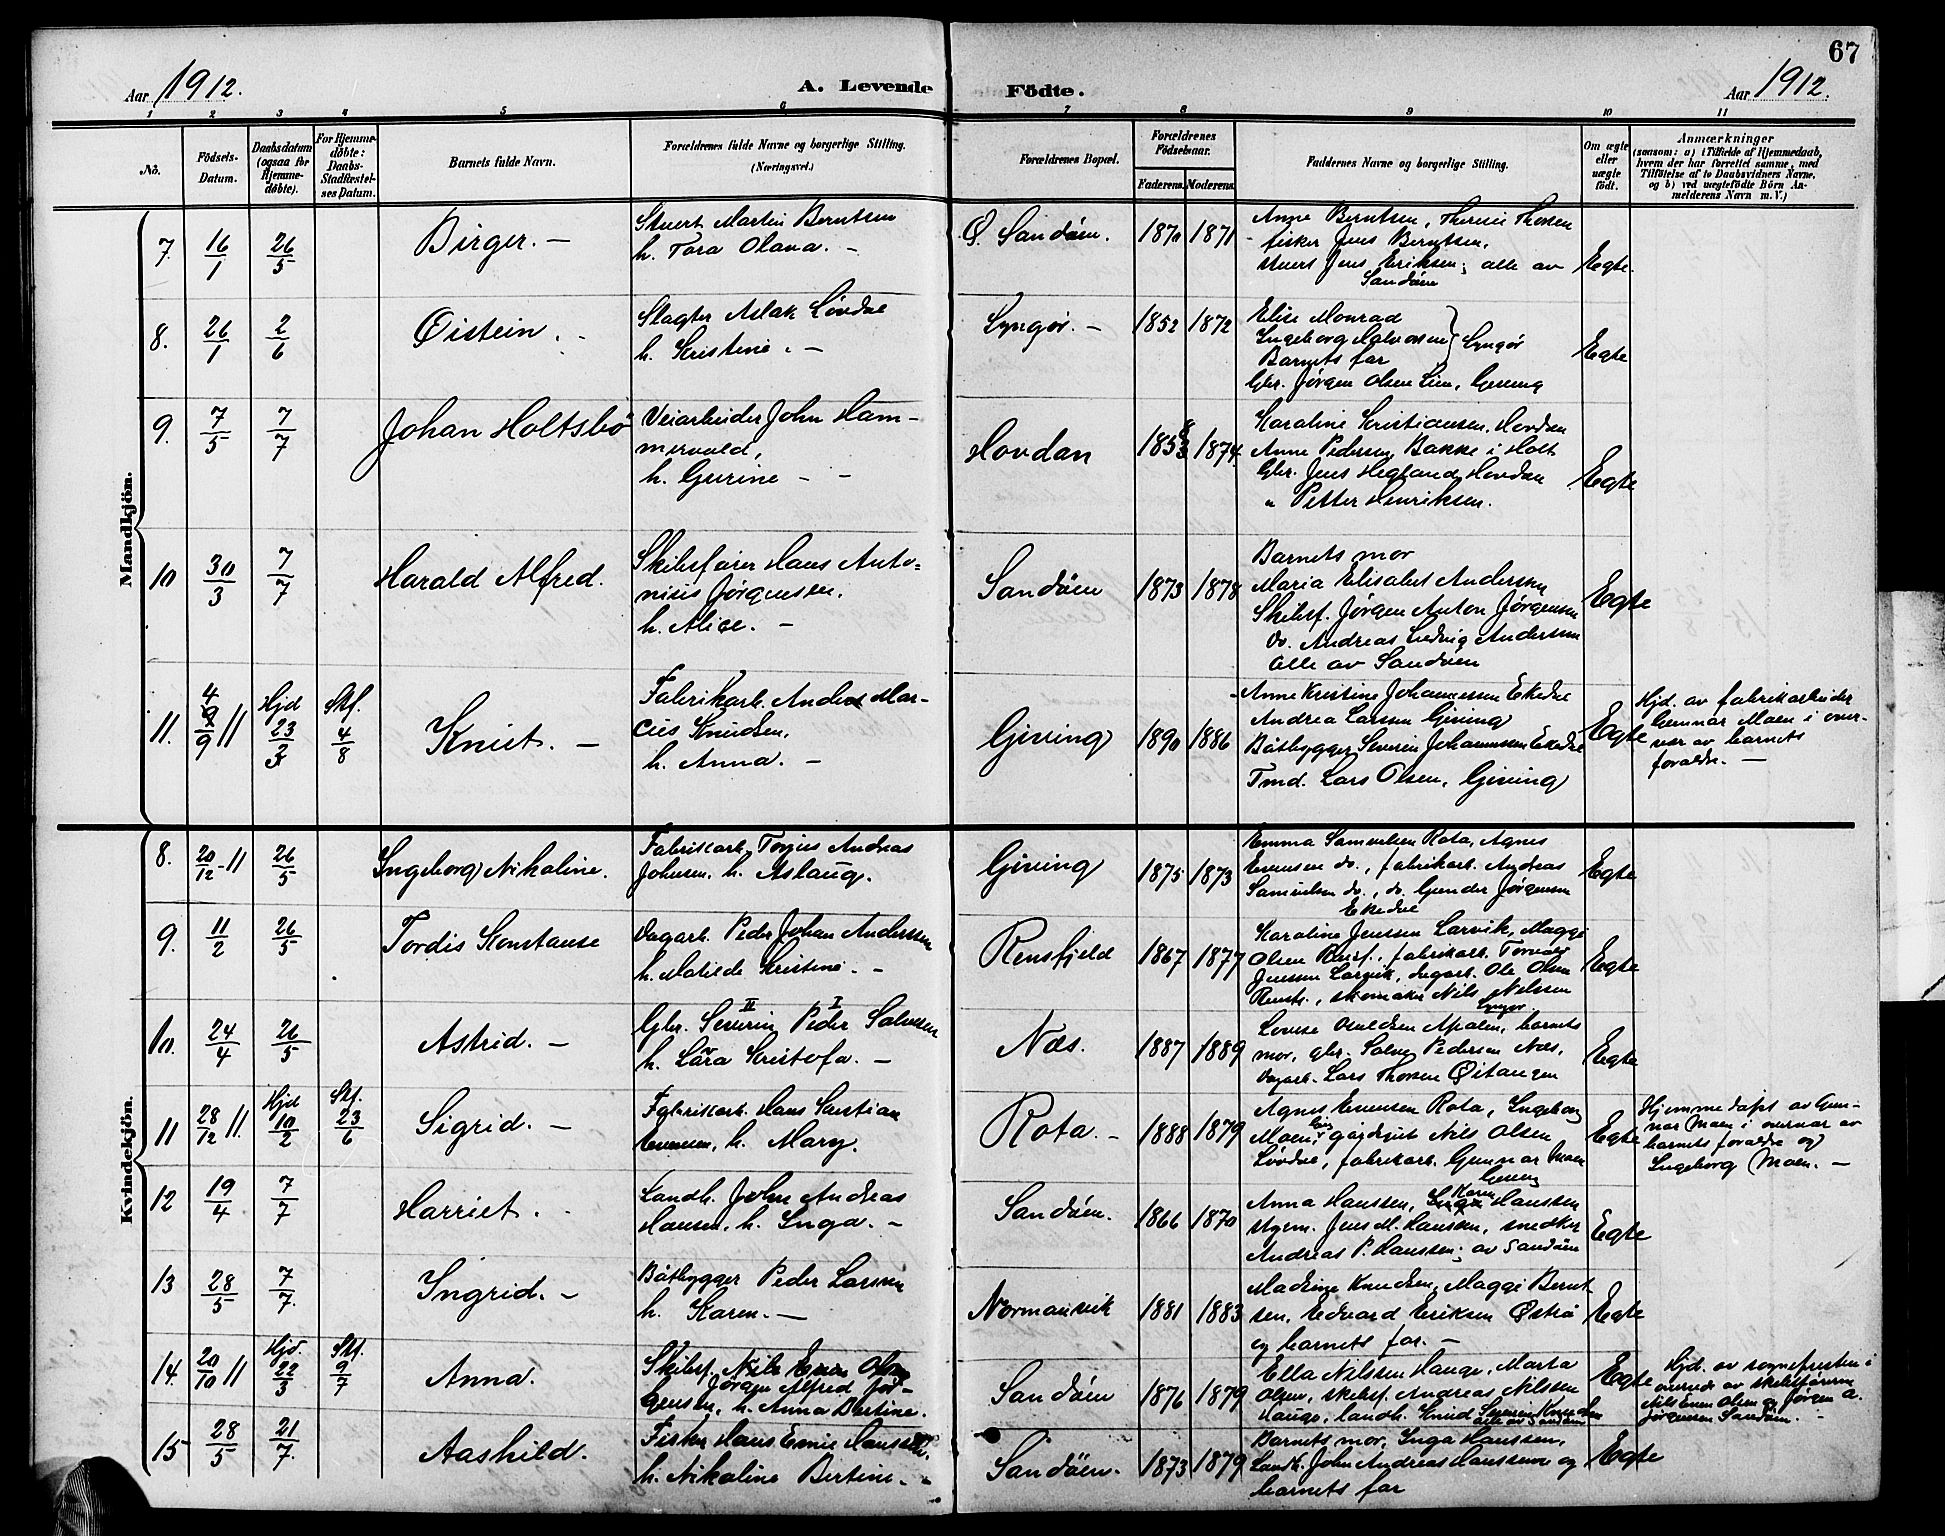 67
Aar 1912.
A. Levende Födte.
Aar 1912.
1 2 3 4 5 6 7 8 9 10 11
No.
Födsels-
Datum.
Daabsdatum
(ogsaa for
Hjemme-
döbte).
For Hjemme-
döbte:
Daabs-
Stadfæstel-
ses Datum.
Barnets fulde Navn.
Forældrenes fulde Navne og borgerlige Stilling.
(Næringsvei.)
Forældrenes Bopæl.
Forældrenes
Födselsaar.
Faderens.
Moderens.
Faddernes Navne og borgerlige Stilling.
Om ægte
eller
uægte
födt.
Anmærkninger
(saasom: a) i Tilfælde af Hjemmedaab,
hvem der har forrettet samme, med
Tilföielse af to Daabsvidners Navne,
og b) ved uægtefödte Börn An-
melderens Navn m. V.)
Mandkjön.
7. 16/1 26/5 Birger. —
Stuert Martin Berntsen
h. Tora Olava. —
Ø. Sandöen. 1870 1871
Anne Berntsen, Therese Thorsen
fisker Jens Berntsen,
stuert Jens Eriksen; alle av
Sandöen
Egte.
8. 26/1 2/6 Øistein. -
Slagter Aslak Lövdae
h. Kristine. —
Lyngør. — 1852 1872
Elise Monrad
Ingeborg Halvorsen } Lyngør
Barnets far
Gbr. Jørgen Olsen Lien, Gjeving
Egte
9. 7/5 7/7 Johan Holtsbö
Veiarbeider John Ham-
mervold,
h. Gurine — —
Hovdan 1853 1874.
Karoline Kristiansen, Hovdan
Anne Pedersen, Bakke i Holt
Gbr. Jens Hegland, Hovdan
" Petter Henriksen.
Egte
10 30/3 7/7 Harald Alfred.
Skibsfører Hans Anto-
nius Jørgensen.
h. Alice. —
Sandöen 1873 1878
Barnets mor
Maria Elisabet Andersen
Skibsf. Jørgen Anton Jørgensen
Do. Andreas Ludvig Andersen
alle av Sandöen
Egte
11. 4/9 11 Hjd 23/3 Stf. 4/8 Knut. —
Fabrikarb. Anders Mar-
cus Knudsen,
h. Anna. —
Gjeving 1890 1886
Anne Kristine Johannessen Ekedee
Andrea Larsen Gjeving
Båtbygger Severin Johannesen Ekedee
Tmd. Lars Olsen, Gjeving
Egte
Hjd. av fabrikarbeider
Gunnar Moen i over-
vær av barnets
forældre. —
Kvindekjön.
8. 20/12 - 11 26/5 Ingeborg Nikoline.
Fabrikarb. Torjus Andreas
Johnsen. h. Aslaug.
Gjeving 1875 1873
Emma Samuelsen Rota, Agnes
Evensen do., fabrikarb. Andreas
Samuelsen do., do. Gunder Jörgensen
Ekedee
Egte
9. 11/2 26/5 Tordis Konstanse
Dagarb. Peder Johan Andersen
h. Matilde Kristine. —
Rensfjeld 1867 1877
Karoline Jensen Larvik, Maggi
Olsen Rensf., fabrikarb. Torvald
Jensen Larvik, dagarb. Ole Olsen
Rensf., skomaker Nils Nilssen
Lyngør
Egte
10. 24/4 26/5 Astrid. —
II I
Gbr. Severin Peder Salvesen
h. Lara Kristofa. —
Næs. 1887 1889
Lovise Osuldsen Apalen, barnets
mor, gbr. Salve Pedersen Næs,
Dagarb. Lars Thorsen Østangen
Egte
11 28/12 11. Hjd 10/2 Stf. 23/6 Sigrid. —
Fabrikarb. Hans Kristian
Evensen, h. Mary.
Rota. — 1888 1879
Agnes Evensen Rota, Ingeborg
Moen, gårdgut Nils Olsen
Lövdae, fabrikarb. Gunnar Moen
Gjeving
Egte
Hjemmedøpt av Gun-
nar Moen i overvær av
barnets forældre og
Ingeborg Moen. —
12 19/4 7/7 Harriet. -
Landh. John Andreas
Hansen, h. Inga. —
Sandöen. 1866 1870
Anna Hanssen, Karen Hanssen
styrm. Jens M. Hanssen, snedker
Andreas P. Hanssen; av Sandöen
Egte
13 28/5 7/7. Ingrid. —
Båtbygger Peder Larsen
h. Karen. —
Normansvik 1881 1883
Madsine Knudsen, Maggi Bernt-
sen, Edvard Eriksen Øströ
og barnets far. —
Egte
14. 20/10 11 Hjd. 22/3 Stf. 9/7 Anna.
Skibsf.
Jörgen Alfred Jör-
gensen, h. Anna Bertine.
Sandöen 1876 1879
Ella Nilssen Hauge, Marta
Olsen, skibsf. Andreas Nilssen
Hauge, landh. Knud Severin Knudsen
alle av Sandöen
Egte
Hjd. av sognepresten i
overvær av skibsførerne
Nils Even Olsen og Jörgen A.
Jörgensen Sandöen. -
15 28/5 21/7. Aashild.
Fisker Hans Emil Hanssen.
h. Nikoline Bertine. -
Sandöen. 1873 1879
Barnets mor, Inga Hanssen,
Landh. John Andreas Hanssen og
barnets far
Egte